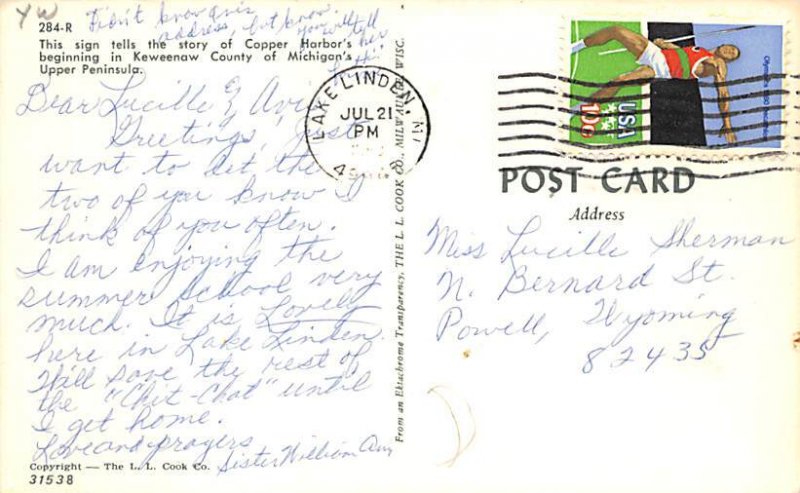 YW
284-R
This sign tells the story of Copper Harbor's
beginning in Keweenaw County of Michigan's
Upper Peninsula.
address, but know
you will tell
her
Dear Lucille &
Greetings, Just
want to let the
two of you know I
think of you often.
I am enjoying the
summer school very
much. It is Lovely
here in Lake Linden.
Will save the rest of
the "Chit-Chat" until
I get home.
Love and prayers
Sister William Ann
Copyright — The L. L. Cook Co.
31538
From an Ektachrome Transparency, THE L. L. COOK CO., MILWAUKEE, WISC.
LAKE LINDEN, MI
JUL 21
PM
USA
10c
POST CARD
Address
Miss Lucille Sherman
N. Bernard St.
Powell, Wyoming
82435